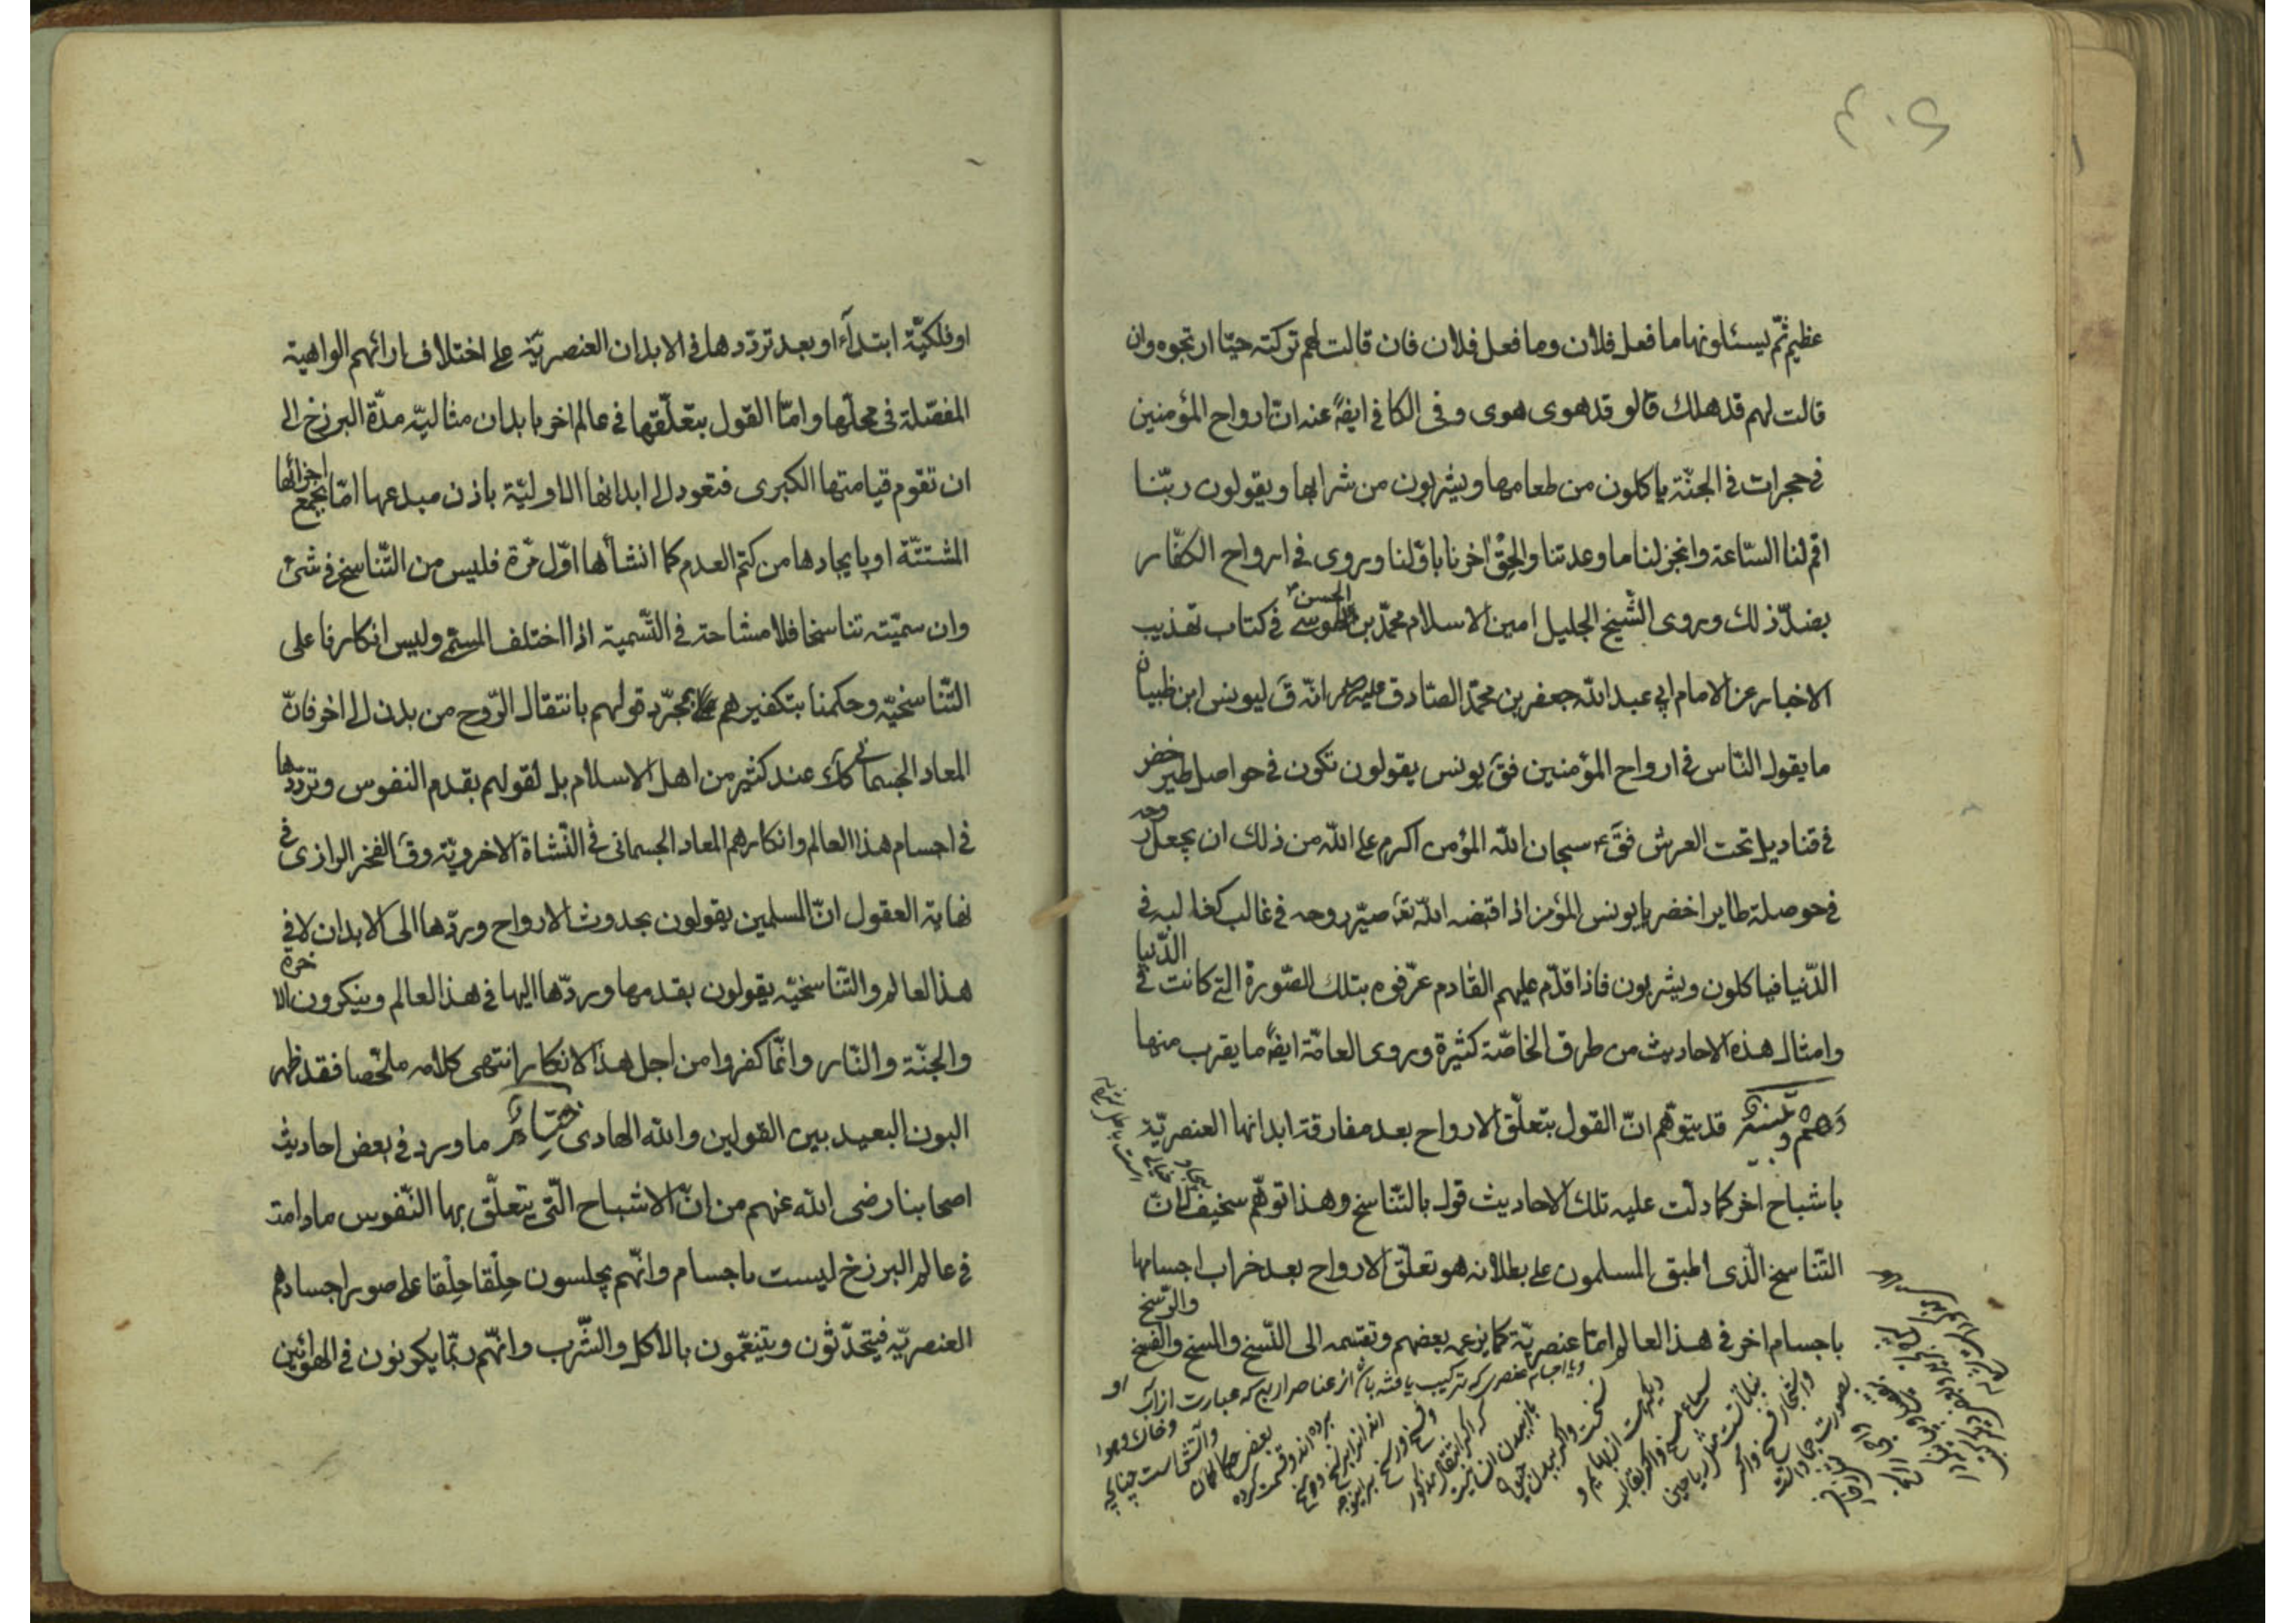 ۴۰۶
عظیم ثمّ یسئلونها ما فعل فلان وما فعل فلان فان قالت لهم ترکته حیّا ارتجوه وان
قالت لهم قد هلك قالو قد هوی هوی وفی الکافی ایضً عنه انّ ارواح المؤمنین
فی حجرات فی الجنّة یاکلون من طعامها ویشربون من شرابها ویقولون ربّنا
اقم لنا السّاعة وانجز لنا ما وعدتنا والحِقْ اخرنا باوّلنا وروی فی ارواح الکفّار
بضدّ ذلك وروی الشّیخ الجلیل امین الاسلام محمّد بن الحسن الطّوسی فی کتاب تهذیب
الاخبار عن الامام ابی عبد الله جعفر بن محمّد الصّادق انّه قَ لیونس ابن ظبیان
ما یقول النّاس فی ارواح المؤمنین فقَ یونس یقولون تکون فی حواصل طیر خضر
فی قنادیل تحت العرش فقَ ع سبحان الله المؤمن اکرم علی الله من ذلك ان یجعل روحه
فی حوصلة طایر اخضر یا یونس المؤمن اذا قبضه الله تعَ صیّر روحه فی غالب کغالبه فی
الدّنیا فیاکلون ویشربون فاذا قدّم علیهم القادم عرّفوه بتلك الصّورة الّتی کانت فی الدّنیا
وامثال هذه الاحادیث من طرق الخاصّة کثیرة وروی العامّة ایضً ما یقرب منها
وَهْمٌ و تنبیه قد یتوهّم انّ القول بتعلّق الارواح بعد مفارقة ابدانها العنصریّة
باشباح اخر کما دلّت علیه تلك الاحادیث قول بالتّناسخ وهذا توهّم سخیف لانّ
التّناسخ الّذی اطبق المسلمون علی بطلانه هو تعلّق الارواح بعد خراب اجسامها
باجسام اخر فی هذا العالم امّا عنصریّة کما یزعمه بعضهم وتقسّمه الی النّسخ والمسخ والفسخ والرّسخ
ویا اجسام عنصری که ترکیب یافته باشد از عناصر اربع که عبارت از آب
وخاك وهوا
وآتش است چنانچه
بعضی حکما کمان
برده اند و قسمت کرده
اوفلکیّة ابتدآءً او بعد تردّدها فی الابدان العنصریّة علی اختلاف ارائهم الواهیة
المفصّلة فی محلّها وامّا القول بتعلّقها فی عالم اخر بابدان مثالیّه مدّة البرزخ الی
ان تقوم قیامتها الکبری فتعود الی ابدانها الاولیّة باذن مبدعها امّا بجمع اجزائها
المشتتّة او بایجادها من کتم العدم کما انشأها اوّل مرّة فلیس من التّناسخ فی شئ
وان سمیّته تناسخا فلا مشاحة فی التّسمیة اذا اختلف المسمّی ولیس انکارنا علی
التّناسخیّه وحکمنا بتکفیرهم بمجرّد قولهم بانتقال الرّوح من بدن الی اخر فانّ
المعاد الجسمانی کذلك عند کثیر من اهل الاسلام بل لقولهم بقدم النفوس وتردّدها
فی اجسام هذا العالم وانکارهم المعاد الجسمانی فی النّشاة الاخرویّة وقَ الفخر الرازی فی
نهایة العقول انّ المسلمین یقولون بحدوث الارواح وردّها الی الابدان لا فی
هذا العالم والتّناسخیّه یقولون بقدمها وردّها الیها فی هذ العالم وینکرون الاخرة
والجنّة والنّار وانّما کفروا من اجل هذا الانکار انتهی کلامه ملخّصا فقد ظهر
البون البعید بین القولین والله الهادی خِتامٌ ما ورد فی بعض احادیث
اصحابنا رضی الله عنهم من انّ الاشباح الّتی یتعلّق بها النّفوس ما دامت
فی عالم البرزخ لیست باجسام وانّهم یجلسون حِلَقا حِلَقا علی صور اجسادهم
العنصریّه فیتحدّثون ویتنعّمون بالاکل والشّرب وانّهم ربّما یکونون فی الهواء بین